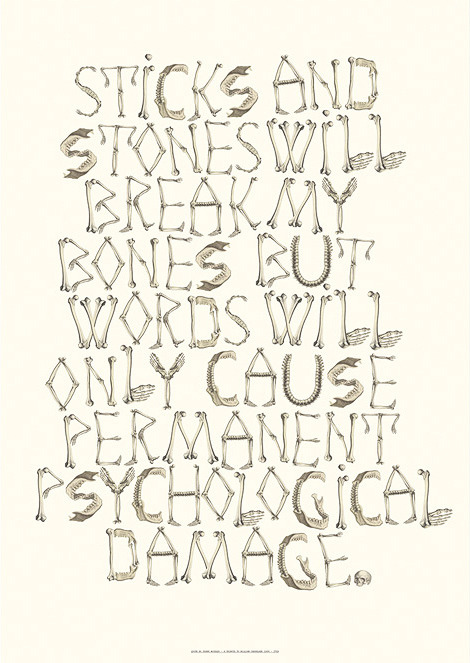 STICKS AND
STONES WILL
BREAK MY
BONES BUT
WORDS WILL
ONLY CAUSE
PERMANENT
PSYCHOLOGICAL
DAMAGE.